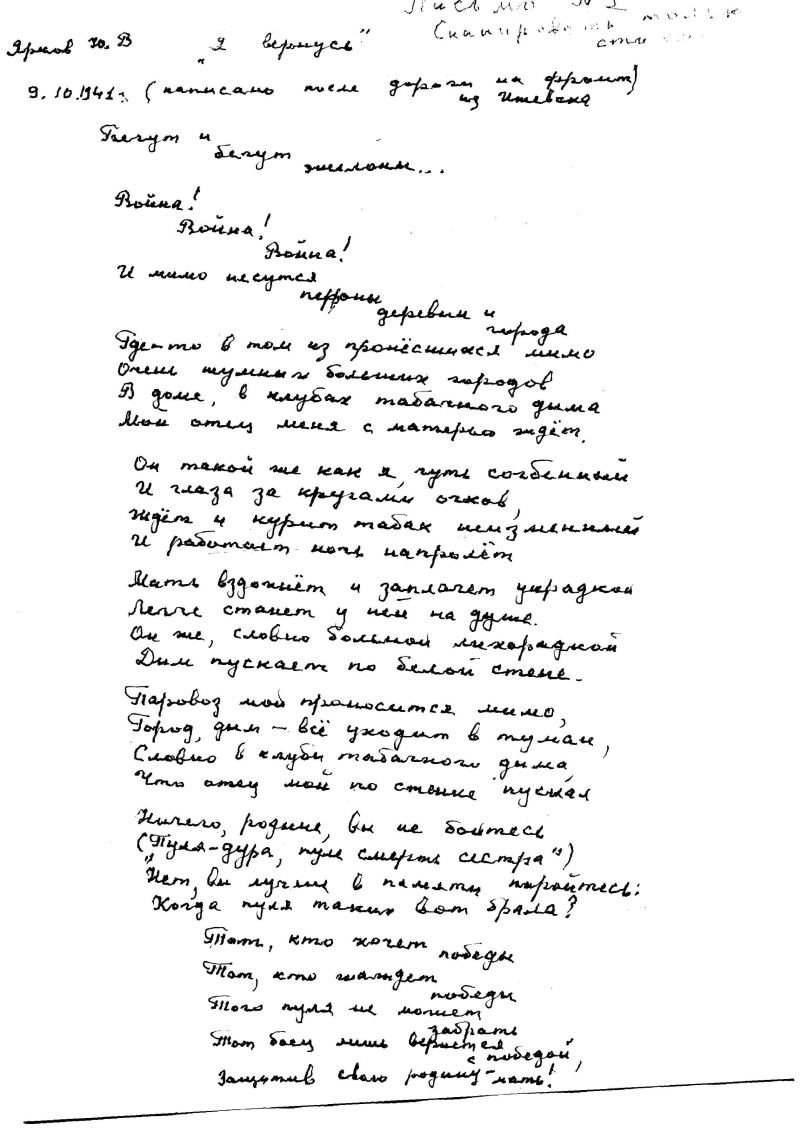 Письмо N 2
Сканировать только
стихи
Ярмов Ю. В "Я вернусь"
9.10.1941г. (написано после дороги на фронт)
из Ишевска
Бегут и
бегут
эшелоны...
Война!
Война!
Война!
И мимо несутся
перроны
деревни и
города
Где-то в том из пронёсшихся мимо
Очень шумных больших городов
В доме, в клубах табачного дыма
Мой отец меня с матерью ждёт.
Он такой же как я, чуть согбенный
И глаза за кругами очков,
Ждёт и курит табак неизменный
И работает ночь напролёт
Мать вздохнёт и заплачет украдкой
Легче станет у ней на душе.
Он же, словно больной лихорадкой
Дым пускает по белой стене.
Паровоз мой проносится мимо,
Город, дым – всё уходит в туман,
Словно в клубы табачного дыма,
Что отец мой по стенке пускал
Ничего, родные, вы не бойтесь
("Пуля-дура, пуле смерть сестра")
"Нет, вы лучше в памяти поройтесь:
Когда пуля таких вот брала?
Тот, кто хочет
победы
Тот, кто жаждет
победы
Того пуля не может
забрать
Тот боец лишь вернется
с победой,
Защитив свою родину-мать!